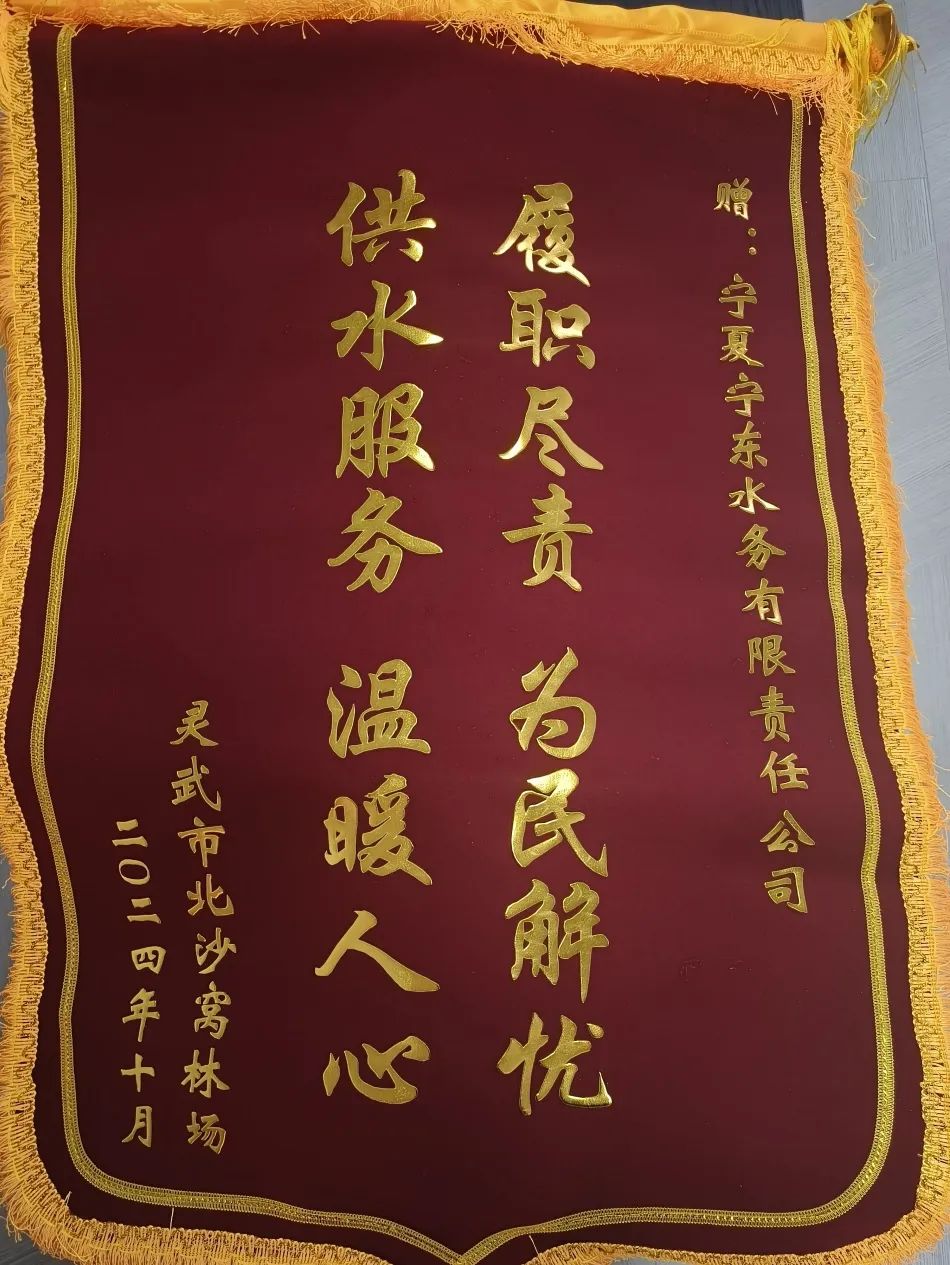 赠：宁夏宁东水务有限责任公司
履职尽责 为民解忧
供水服务 温暖人心
灵武市北沙窝林场
二〇二四年十月